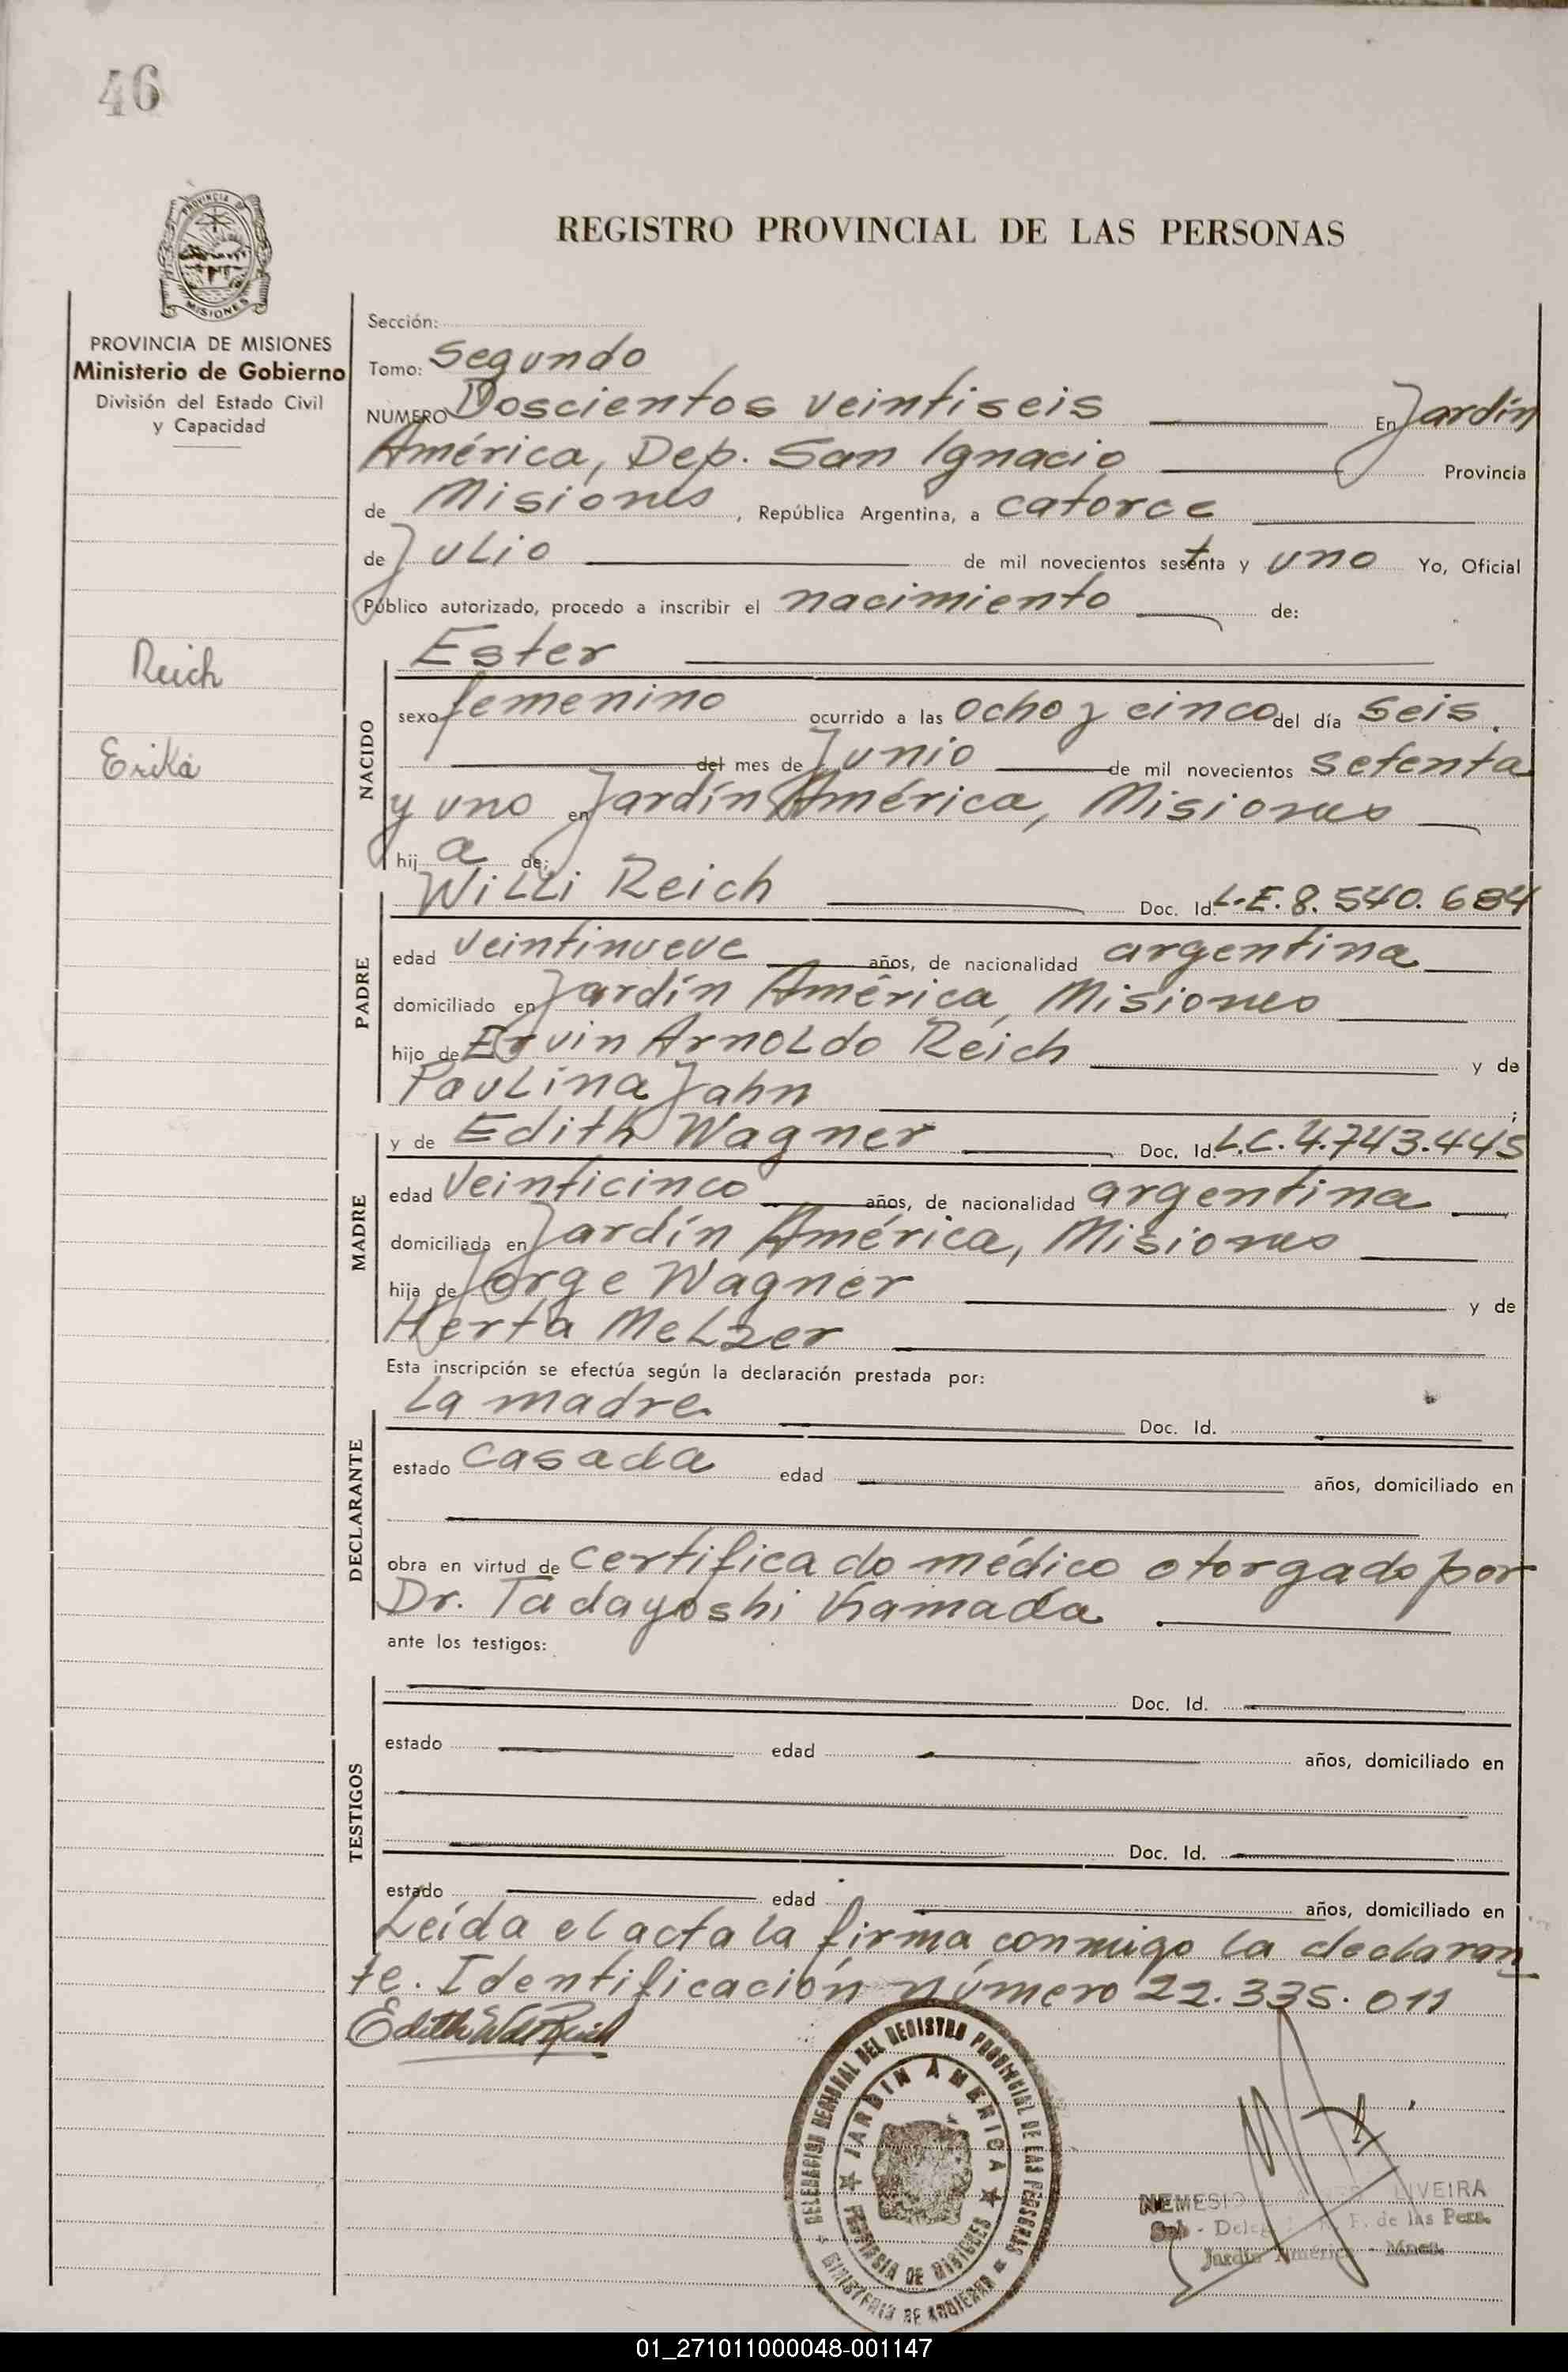 46
REGISTRO PROVINCIAL DE LAS PERSONAS
PROVINCIA DE MISIONES
PROVINCIA DE MISIONES
Ministerio de Gobierno
División del Estado Civil
y Capacidad
Reich
Erika
Sección:
Tomo: Segundo
NUMERO Doscientos veintiseis En Jardín
América, Dep. San Ignacio Provincia
de Misiones, República Argentina, a catorce
de Julio de mil novecientos setenta y uno Yo, Oficial
Público autorizado, procedo a inscribir el nacimiento de:
NACIDO
Ester
sexo femenino ocurrido a las ocho y cinco del día seis.
del mes de Junio de mil novecientos setenta
y uno en Jardín América, Misiones
hij a de:
PADRE
Willi Reich Doc. Id. L.E. 8.540.684
edad veintinueve años, de nacionalidad argentina
domiciliado en Jardín América, Misiones
hijo de Ervin Arnoldo Reich y de
Paulina Jahn ;
MADRE
y de Edith Wagner Doc. Id. L.C. 4.743.445
edad veinticinco años, de nacionalidad argentina
domiciliada en Jardín América, Misiones
hija de Jorge Wagner y de
Herta Melzer
Esta inscripción se efectúa según la declaración prestada por:
DECLARANTE
La madre Doc. Id.
estado casada edad años, domiciliado en
obra en virtud de certificado médico otorgado por
Dr. Tadayoshi Kamada
ante los testigos:
TESTIGOS
Doc. Id.
estado edad años, domiciliado en
Doc. Id.
estado edad años, domiciliado en
Leída el acta la firma conmigo la declaran
te. Identificación número 22.335.011
Edith W de Reich
DELEGACION SECCIONAL DEL REGISTRO PROVINCIAL DE LAS PERSONAS
JARDIN AMERICA
PROVINCIA DE MISIONES
MINISTERIO DE GOBIERNO
NEMESIO LIVEIRA
Sub - Deleg P. de las Pers.
Jardín América - Mnes.
01_271011000048-001147